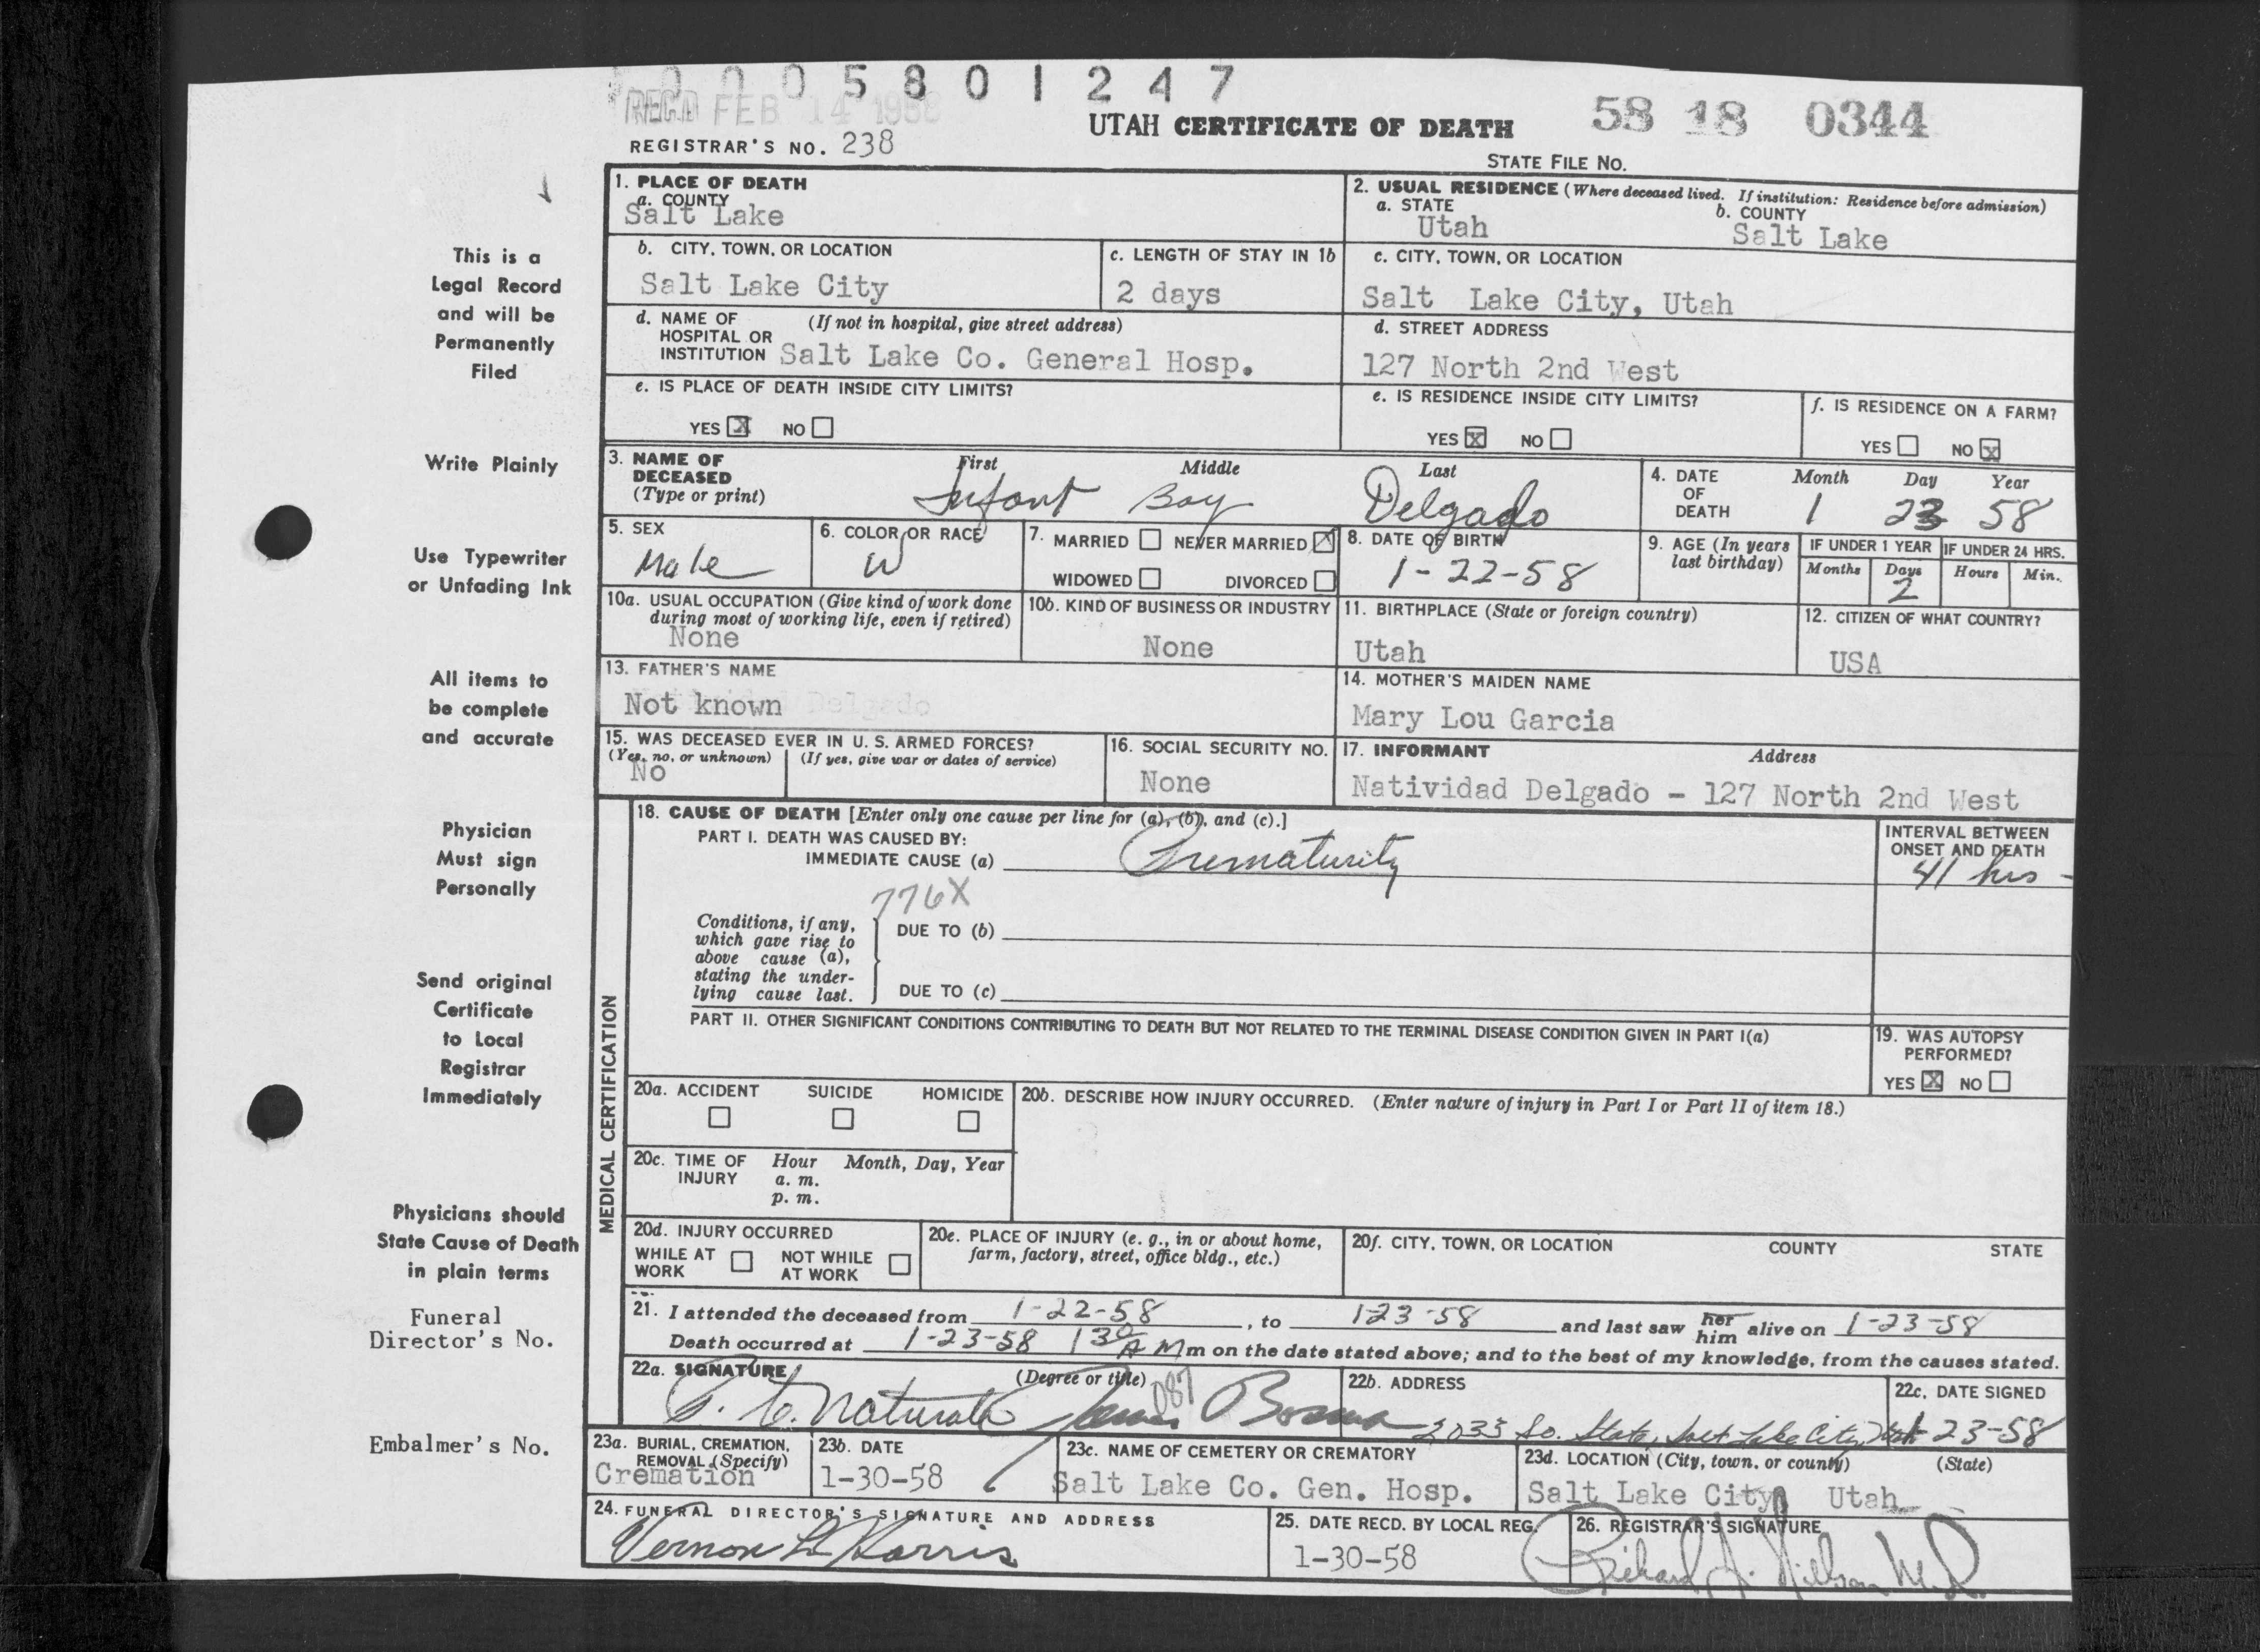 0 0 0 5 8 0 1 2 4 7
REC'D FEB 14 1958
UTAH CERTIFICATE OF DEATH
58 18 0344
REGISTRAR'S NO. 238
STATE FILE NO.
This is a
Legal Record
and will be
Permanently
Filed
Write Plainly
Use Typewriter
or Unfading Ink
All items to
be complete
and accurate
Physician
Must sign
Personally
Send original
Certificate
to Local
Registrar
Immediately
Physicians should
State Cause of Death
in plain terms
Funeral
Director's No.
Embalmer's No.
1. PLACE OF DEATH
a. COUNTY
Salt Lake
2. USUAL RESIDENCE (Where deceased lived. If institution: Residence before admission)
a. STATE
Utah
b. COUNTY
Salt Lake
b. CITY, TOWN, OR LOCATION
Salt Lake City
c. LENGTH OF STAY IN 1b
2 days
c. CITY, TOWN, OR LOCATION
Salt Lake City, Utah
d. NAME OF (If not in hospital, give street address)
HOSPITAL OR
INSTITUTION Salt Lake Co. General Hosp.
d. STREET ADDRESS
127 North 2nd West
e. IS PLACE OF DEATH INSIDE CITY LIMITS?
YES X NO
e. IS RESIDENCE INSIDE CITY LIMITS?
YES X NO
f. IS RESIDENCE ON A FARM?
YES NO X
3. NAME OF
DECEASED
(Type or print)
First Middle Last
Infant Boy Delgado
4. DATE
OF
DEATH
Month Day Year
1 23 58
5. SEX
Male
6. COLOR OR RACE
W
7. MARRIED NEVER MARRIED X
WIDOWED DIVORCED
8. DATE OF BIRTH
1-22-58
9. AGE (In years
last birthday)
IF UNDER 1 YEAR
Months Days
2
IF UNDER 24 HRS.
Hours Min.
10a. USUAL OCCUPATION (Give kind of work done
during most of working life, even if retired)
None
10b. KIND OF BUSINESS OR INDUSTRY
None
11. BIRTHPLACE (State or foreign country)
Utah
12. CITIZEN OF WHAT COUNTRY?
USA
13. FATHER'S NAME
Not known Delgado
14. MOTHER'S MAIDEN NAME
Mary Lou Garcia
15. WAS DECEASED EVER IN U. S. ARMED FORCES?
(Yes, no, or unknown) (If yes, give war or dates of service)
No
16. SOCIAL SECURITY NO.
None
17. INFORMANT Address
Natividad Delgado - 127 North 2nd West
MEDICAL CERTIFICATION
18. CAUSE OF DEATH [Enter only one cause per line for (a), (b), and (c).]
PART I. DEATH WAS CAUSED BY:
IMMEDIATE CAUSE (a) Prematurity
INTERVAL BETWEEN
ONSET AND DEATH
41 hrs -
776X
Conditions, if any,
which gave rise to
above cause (a),
stating the under-
lying cause last.
DUE TO (b)
DUE TO (c)
PART II. OTHER SIGNIFICANT CONDITIONS CONTRIBUTING TO DEATH BUT NOT RELATED TO THE TERMINAL DISEASE CONDITION GIVEN IN PART I(a)
19. WAS AUTOPSY
PERFORMED?
YES X NO
20a. ACCIDENT SUICIDE HOMICIDE
20b. DESCRIBE HOW INJURY OCCURRED. (Enter nature of injury in Part I or Part II of item 18.)
20c. TIME OF Hour Month, Day, Year
INJURY a. m.
p. m.
20d. INJURY OCCURRED
WHILE AT NOT WHILE
WORK AT WORK
20e. PLACE OF INJURY (e. g., in or about home,
farm, factory, street, office bldg., etc.)
20f. CITY, TOWN, OR LOCATION COUNTY STATE
21. I attended the deceased from 1-22-58, to 1-23-58 and last saw her him alive on 1-23-58
Death occurred at 1-23-58 1 30 A M m on the date stated above; and to the best of my knowledge, from the causes stated.
22a. SIGNATURE (Degree or title)
087
22b. ADDRESS
2033 So. State, Salt Lake City, Utah
22c. DATE SIGNED
1-23-58
23a. BURIAL, CREMATION,
REMOVAL (Specify)
Cremation
23b. DATE
1-30-58
23c. NAME OF CEMETERY OR CREMATORY
Salt Lake Co. Gen. Hosp.
23d. LOCATION (City, town, or county) (State)
Salt Lake City Utah
24. FUNERAL DIRECTOR'S SIGNATURE AND ADDRESS
Vernon L Harris
25. DATE RECD. BY LOCAL REG.
1-30-58
26. REGISTRAR'S SIGNATURE
Richard